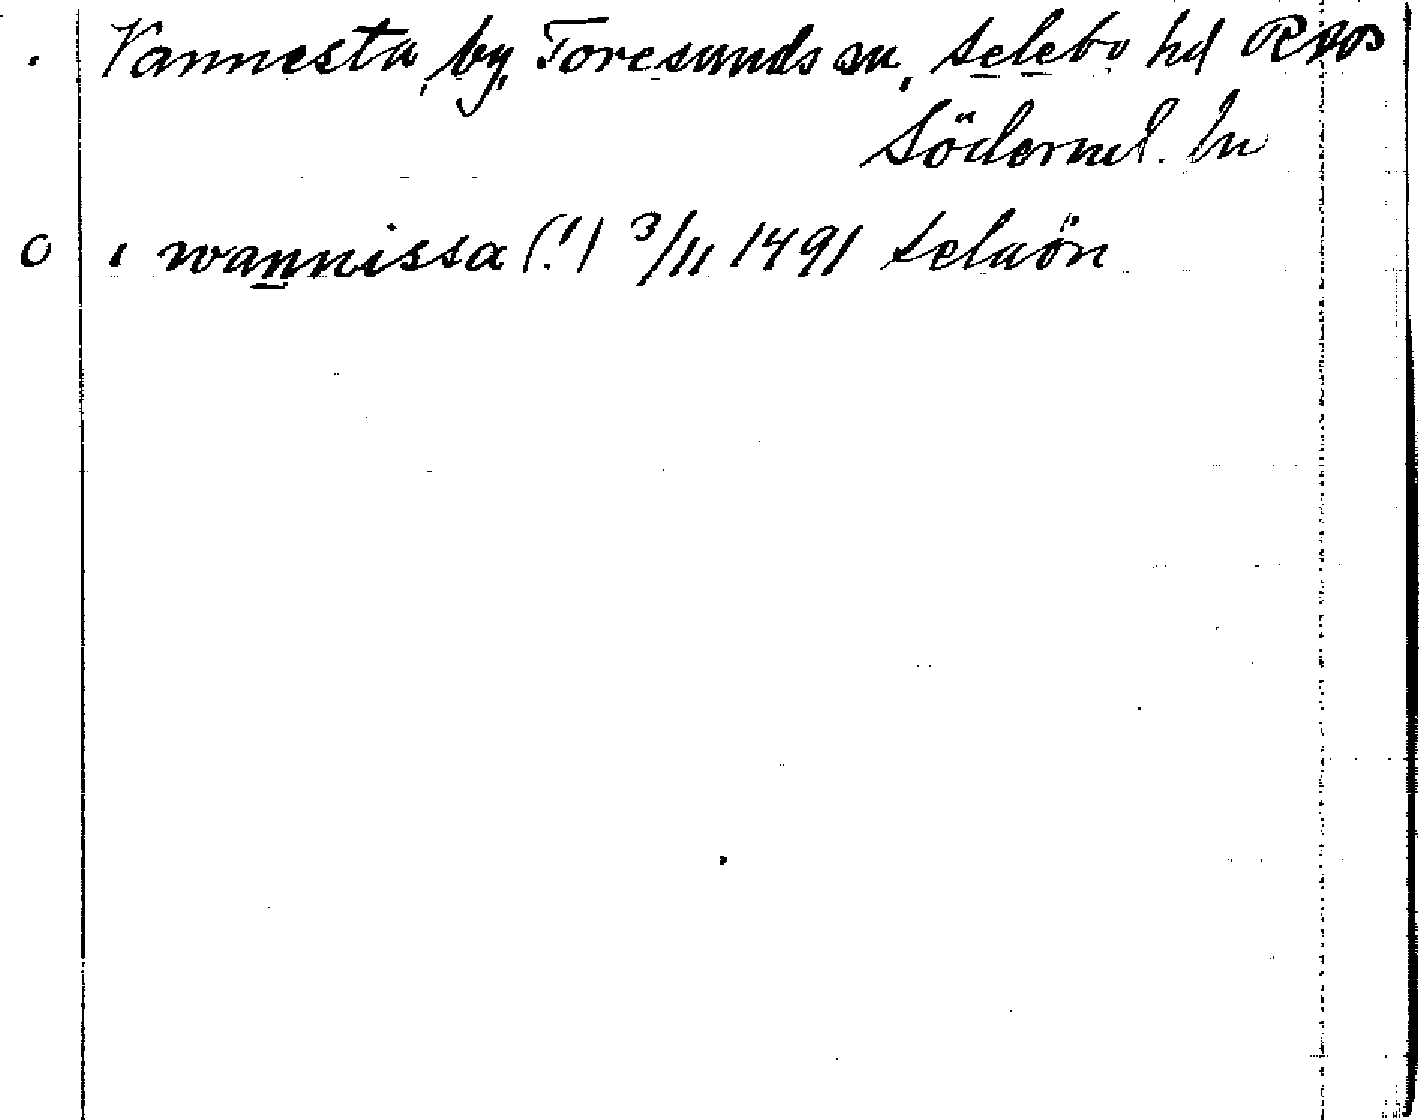 Vannesta, by, Toresunds sn, Selebo hd
Söderml. ln
o i wannissa (!) 3/11 1491 Selaön